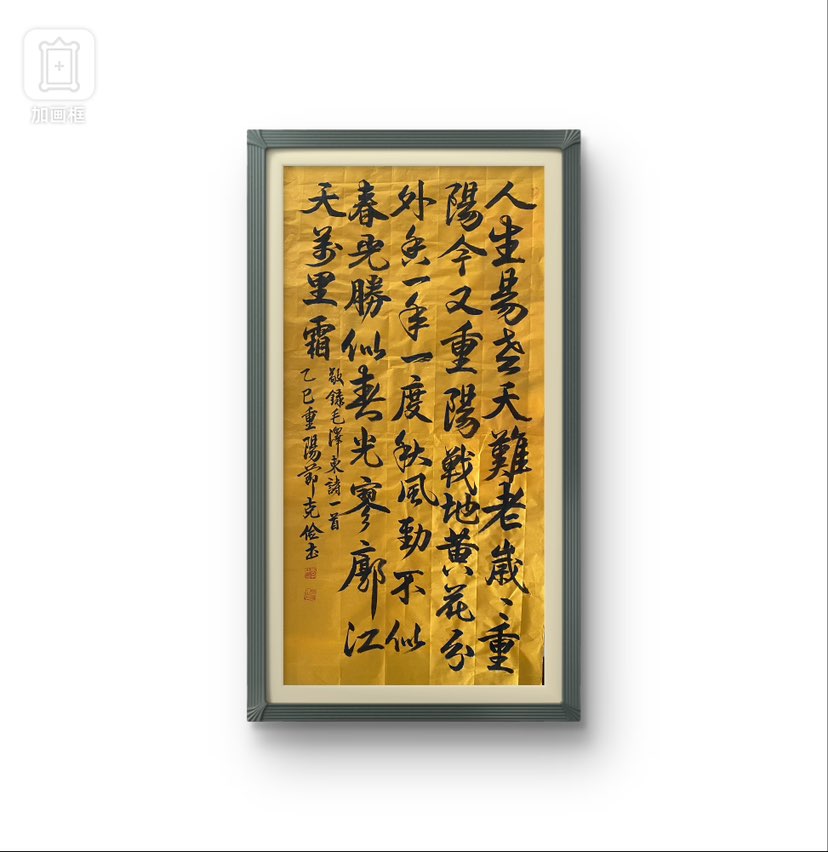 加画框
人生易老天難老歲〻重
陽今又重陽戰地黄花分
外香一年一度秋風勁不似
春光勝似春光寥廓江
天萬里霜
敬録毛澤東詩一首
乙巳重陽節克儉書